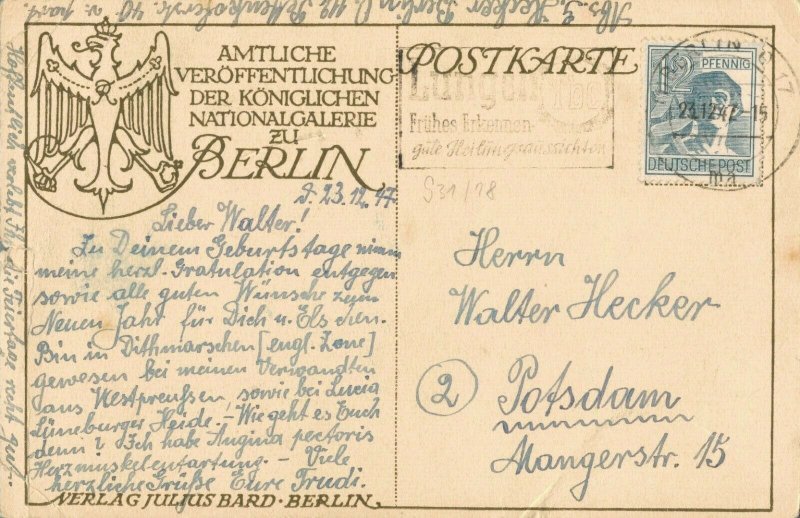 Abs. Hecker Berlin O 112 Pettenkoferstr. 40. v. part.
AMTLICHE
VERÖFFENTLICHUNG
DER KÖNIGLICHEN
NATIONALGALERIE
ZU
BERLIN
POSTKARTE
Lungen
Frühes Erkennen
gute Heilungsaussichten
BERLIN 17
23.12.47-15
ma
12 PFENNIG
DEUTSCHE POST
931/18
d. 23.12.47
Lieber Walter!
Zu Deinem Geburtstage nimm
meine herzl. Gratulation entgegen
sowie alle guten Wünsche zum
Neuen Jahr für Dich u. Elschen.
Bin in Dithmarschen [engl. Zone]
gewesen bei meinen Verwandten
aus Westpreußen sowie bei Lucia
Lüneburger Heide. - Wie geht es Euch
denn? Ich habe Angina pectoris
Herzmuskelentartung. - Viele
herzliche Grüße Eure Trudi.
Hoffentlich verlebt Ihr die Feiertage recht gut.
VERLAG JULIUS BARD · BERLIN
Herrn
Walter Hecker
2 Potsdam
Mangerstr. 15